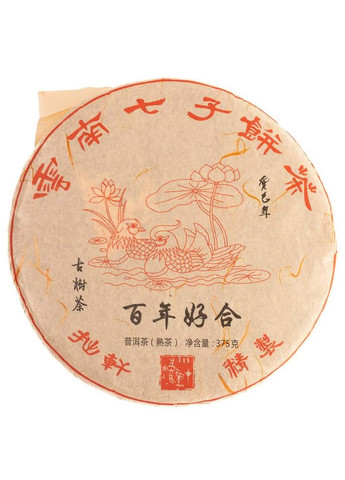 雲南七子餅茶
癸巳年
古樹茶
百年好合
普洱茶（熟茶） 净含量：375克
精製